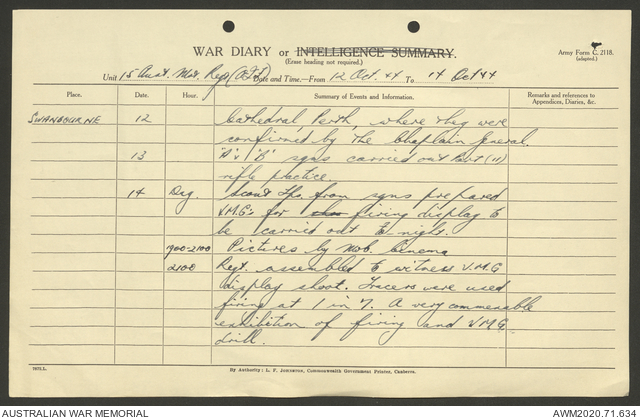 WAR DIARY or INTELLIGENCE SUMMARY.
(Erase heading not required.)
Army Form C. 2118.
(adapted.)
Unit 15 Aust. Mtr. Reg (AIF) Date and Time.—From 12 Oct. 44 To 14 Oct 44
Place. Date. Hour. Summary of Events and Information Remarks and references to Appendices, Diaries, &c.
SWANBOURNE 12 Cathedral, Perth, where they were
confirmed by the Chaplain General.
13 "A" & "B" sqns carried out Part (ii)
rifle practice.
14 Day. Scout Tps. from sqns prepared
V.M.G's for firing display to
be carried out to night.
1900-2100 Pictures by Mob. Cinema
2100 Regt. assembled to witness V.M.G.
display shoot. Tracers were used
firing at 1 in 7. A very commendable
exhibition of firing and V.M.G.
drill.
By Authority: L. F. Johnston, Commonwealth Government Printer, Canberra.
AUSTRALIAN WAR MEMORIAL
AWM2020.71.634